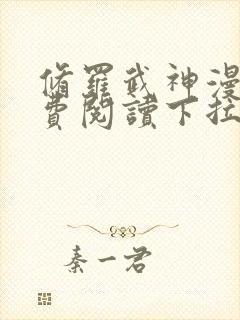 脩羅武神漫
費閱讀下拉
秦一君